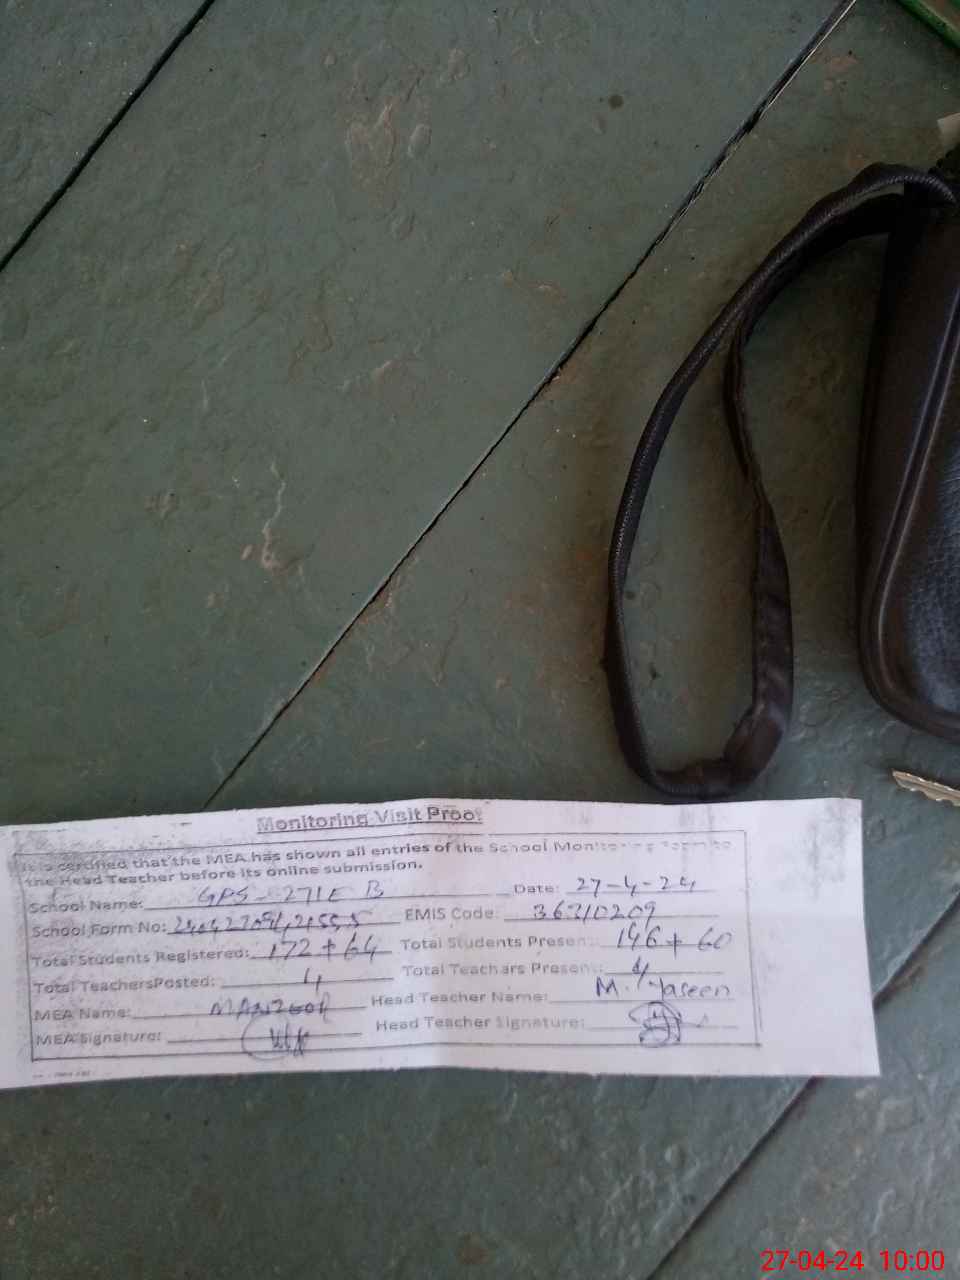 Monitoring Visit Proof
It is certified that the MEA has shown all entries of the School Monitoring Form to
the Head Teacher before its online submission.
School Name: GPS - 271 E B Date: 27-4-24
School Form No: EMIS Code: 36310209
Total Students Registered: 172 + 64 Total Students Present: 146 + 60
Total TeachersPosted: 4 Total Teachers Present: 4
MEA Name: MANZOOR Head Teacher Name: M. Yaseen
MEA Signature: Head Teacher Signature:
27-04-24 10:00